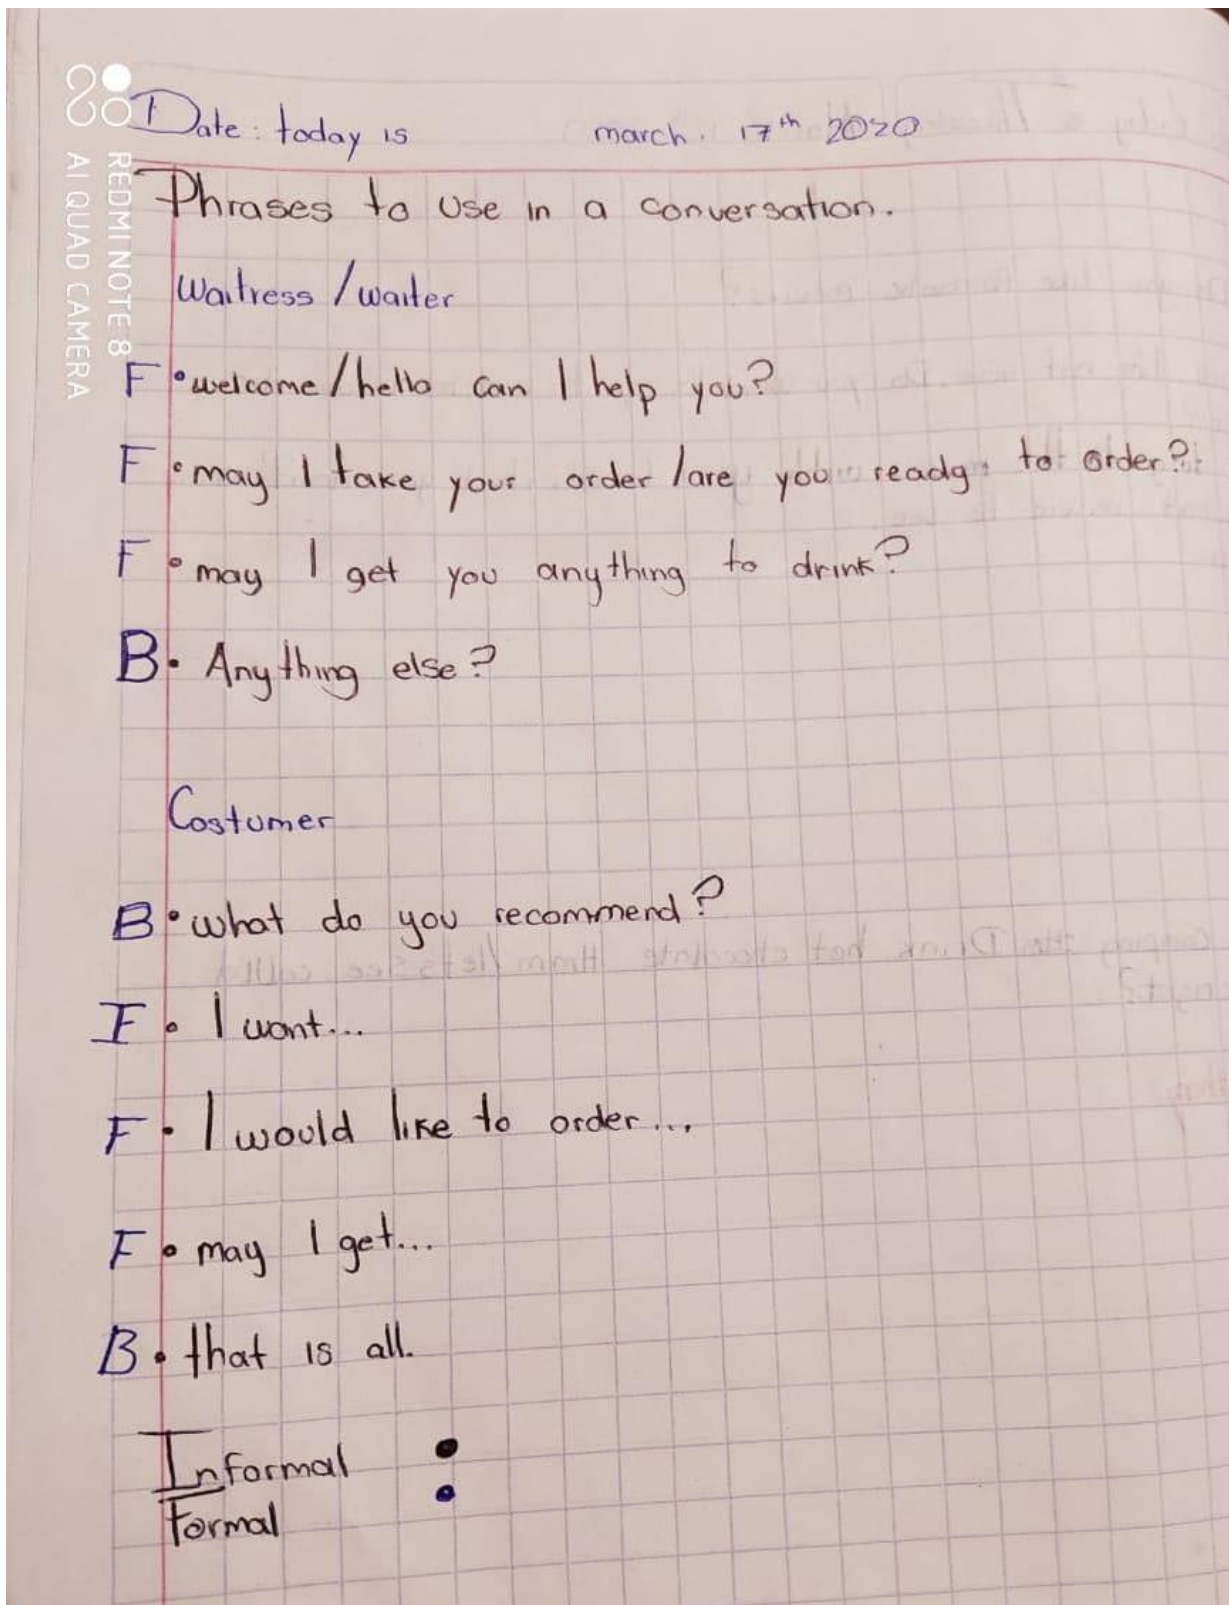 Date: today is march. 17th 2020
Phrases to use in a conversation.
Waitress / waiter
F • welcome / hello can I help you?
F • may I take your order / are you ready to order?
F • may I get you anything to drink?
B • Anything else?
Costumer
B • what do you recommend?
I • I want...
F • I would like to order...
F • may I get...
B • that is all.
Informal •
Formal •
REDMI NOTE 8
AI QUAD CAMERA